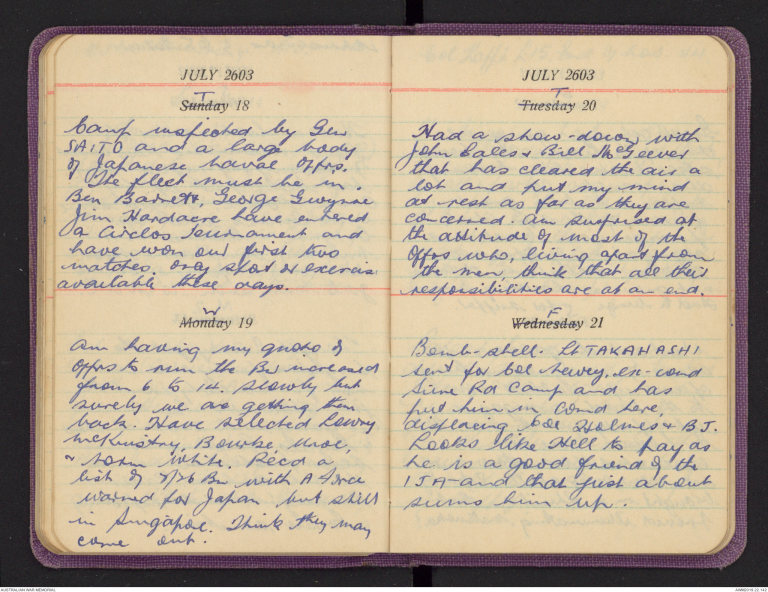 JULY 2603
T
Sunday 18
Camp inspected by Gen
SAITO and a large body
of Japanese naval offrs.
The fleet must be in.
Ben Barnett, George Gwynne
Jim Hardacre have entered
a Circlos Tournament and
have won our first two
matches. Only sport or exercise
available these days.
W
Monday 19
Am having my quota of
offrs to run the Bn increased
from 6 to 14. Slowly but
surely we are getting them
back. Have selected
Bourke,
& Norm White. Recd a
list of 2/26 Bn with A Force
warned for Japan but still
in Singapore. Think they may
come out.
JULY 2603
T
Tuesday 20
Had a show-down with
John Eales & Bill McGeever
that has cleared the air a
lot and put my mind
at rest as far as they are
concerned. Am surprised at
the attitude of most of the
offrs who, living apart from
the men, think that all their
responsibilities are at an end.
F
Wednesday 21
Bomb-shell. Lt TAKAHASHI
sent for Col Newey, ex-comd
Sime Rd Camp and has
put him in comd here,
displacing Col Holmes & BJ.
Looks like Hell to pay as
he is a good friend of the
IJA and that just about
sums him up.
AUSTRALIAN WAR MEMORIAL
AWM2019.22.142